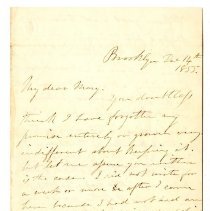 Brooklyn Dec 14th
1855.
My dear Mary.
You doubtless
think I have forgotten my
promise entirely or grown very
indifferent about keeping it.
but let me assure you neither
is the case. I did not write for
a week or more after I came
here because I had not